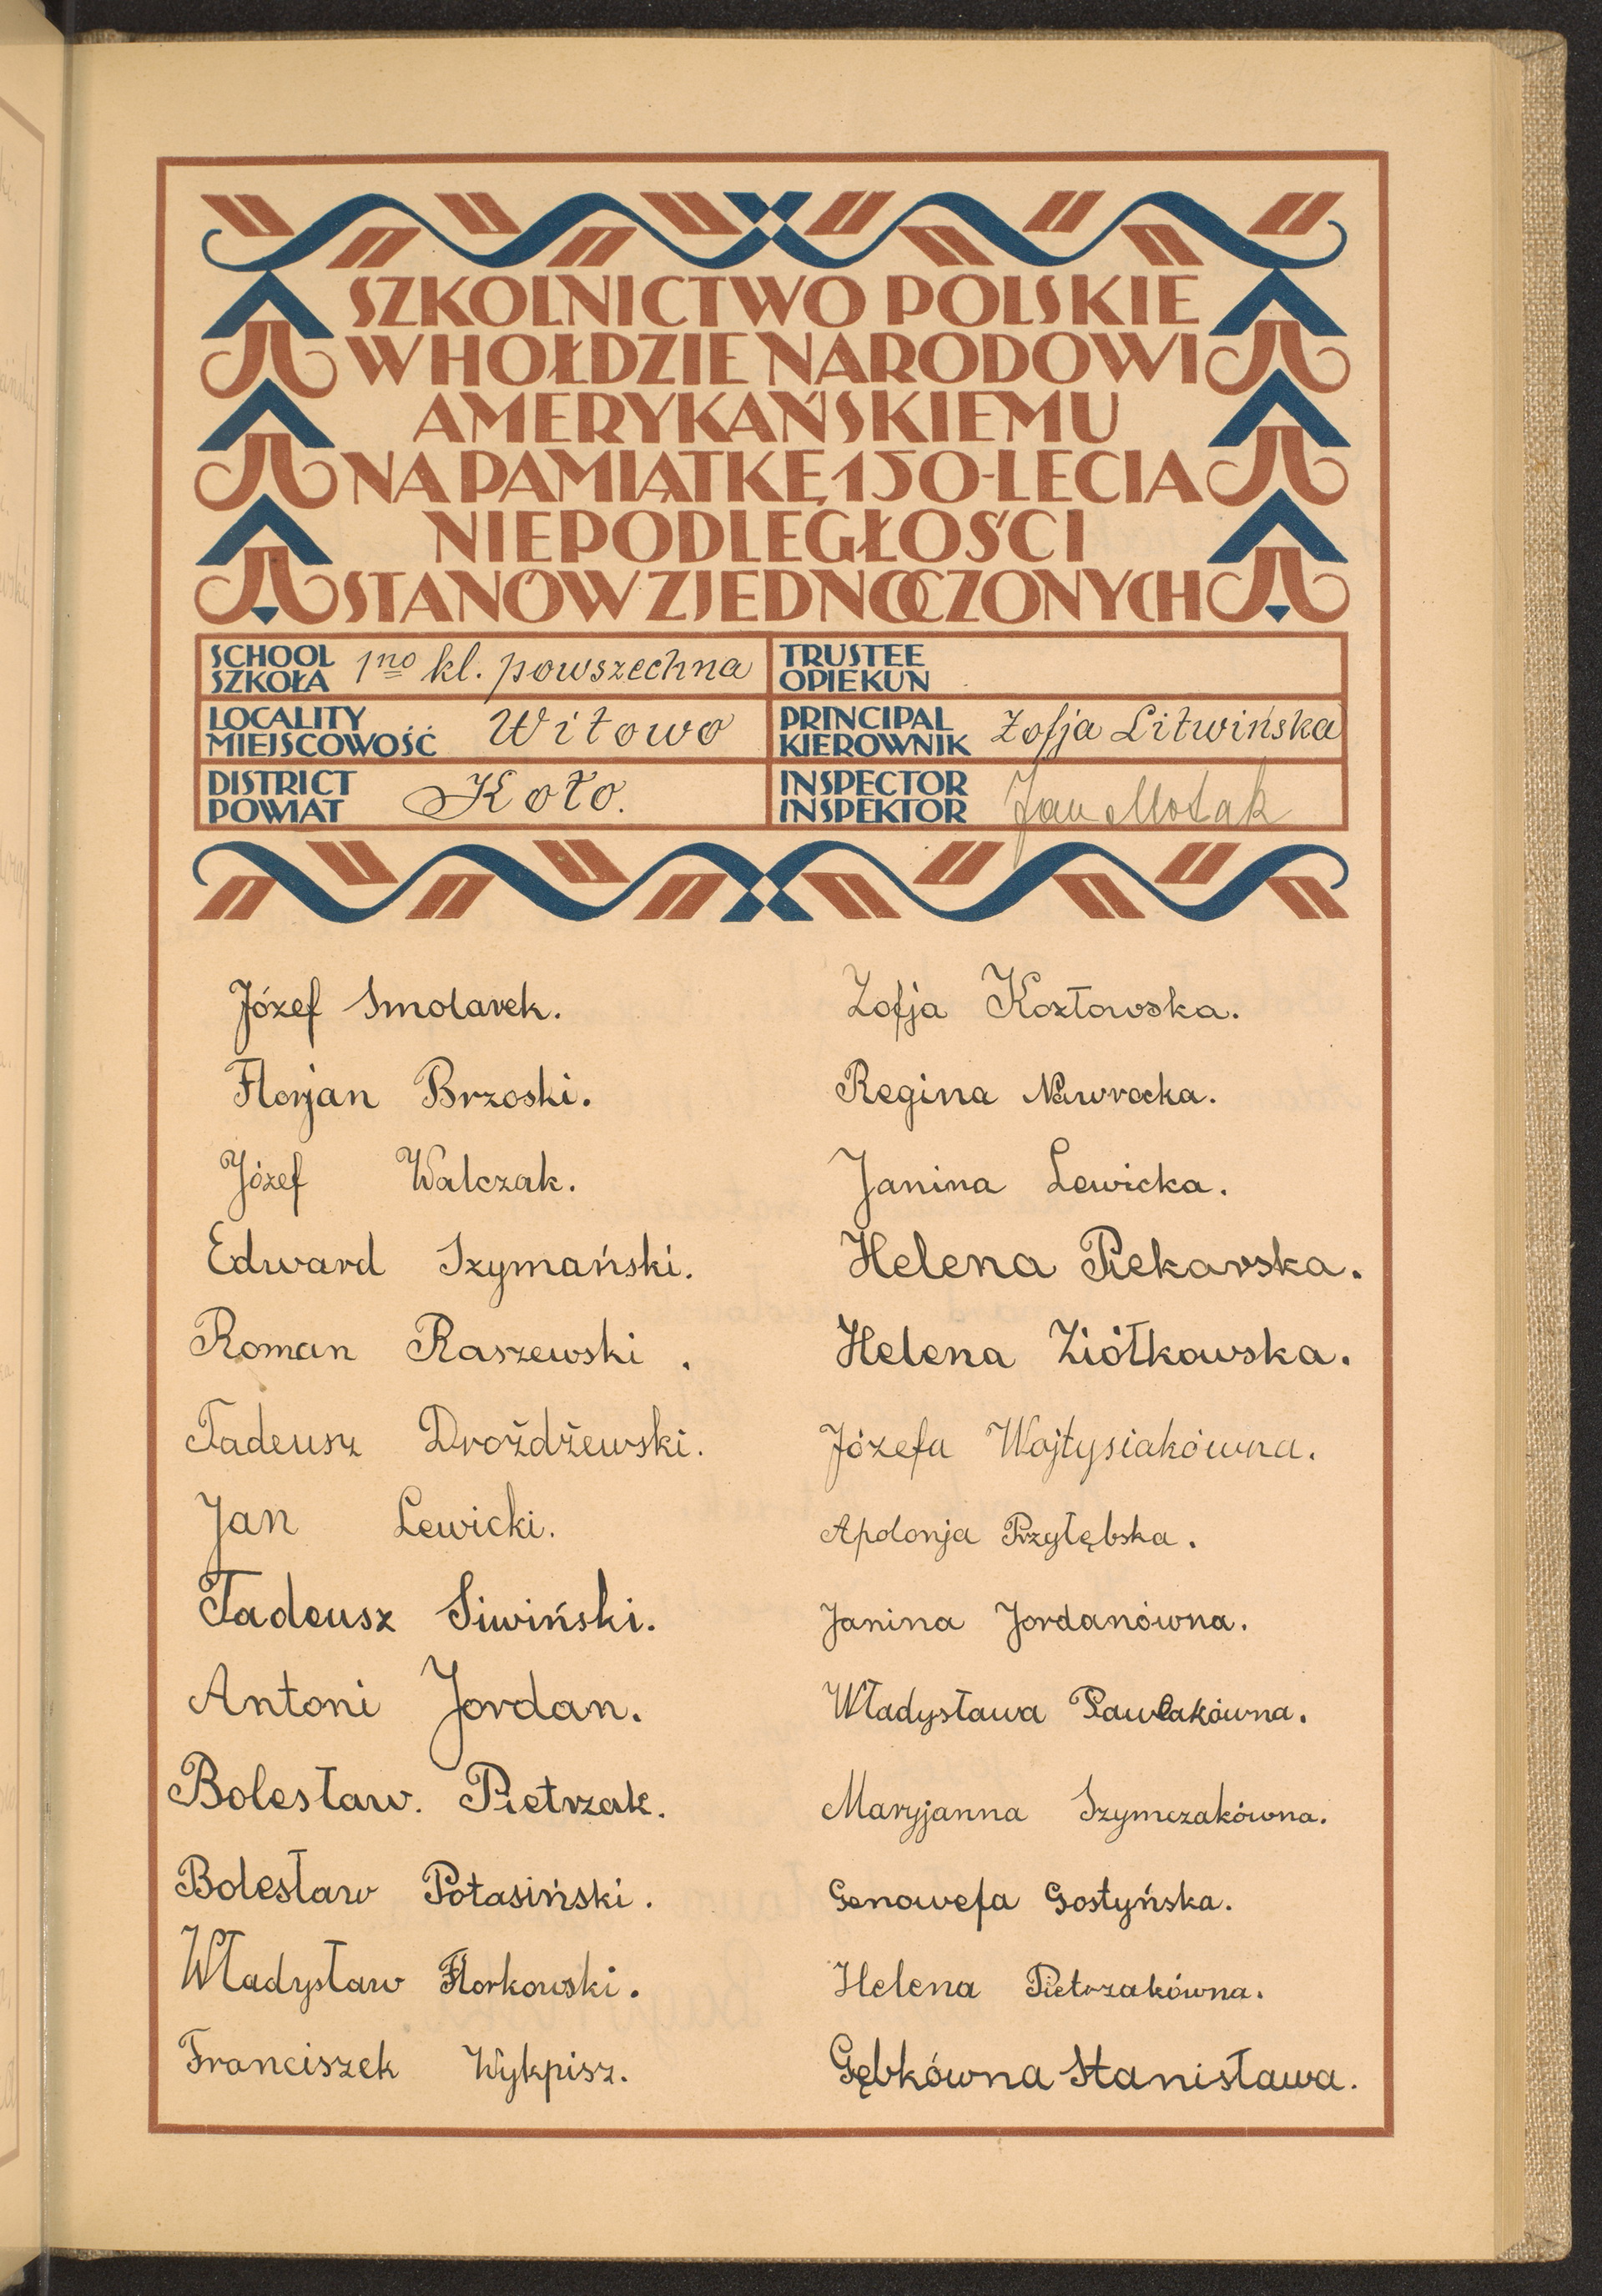 SZKOLNICTWO POLSKIE
W HOŁDZIE NARODOWI
AMERYKAŃSKIEMU
NA PAMIĄTKĘ 150-LECIA
NIEPODLEGŁOŚCI
STANÓW ZJEDNOCZONYCH
SCHOOL
SZKOŁA
1no kl. powszechna
TRUSTEE
OPIEKUN
LOCALITY
MIEJSCOWOŚĆ
Witowo
PRINCIPAL
KIEROWNIK
Zofja Litwińska
DISTRICT
POWIAT
Koło.
INSPECTOR
INSPEKTOR
Jan
Józef Smolarek.
Florjan Brzoski.
Józef Walczak.
Edward Szymański.
Roman Raszewski.
Tadeusz Drożdżewski.
Jan Lewicki.
Tadeusz Siwiński.
Antoni Jordan.
Bolesław. Pietrzak.
Bolesław Potasiński.
Władysław Florkowski.
Franciszek Wykpisz.
Zofja Kozłowska.
Regina Nawrocka.
Janina Lewicka.
Helena Piekarska.
Helena Ziółkowska.
Józefa Wojtysiakówna.
Apolonja Przyłębska.
Janina Jordanówna.
Władysława Pawlakówna.
Maryjanna Szymczakówna.
Genowefa Gostyńska.
Helena Pietrzakówna.
Gębkówna Stanisława.